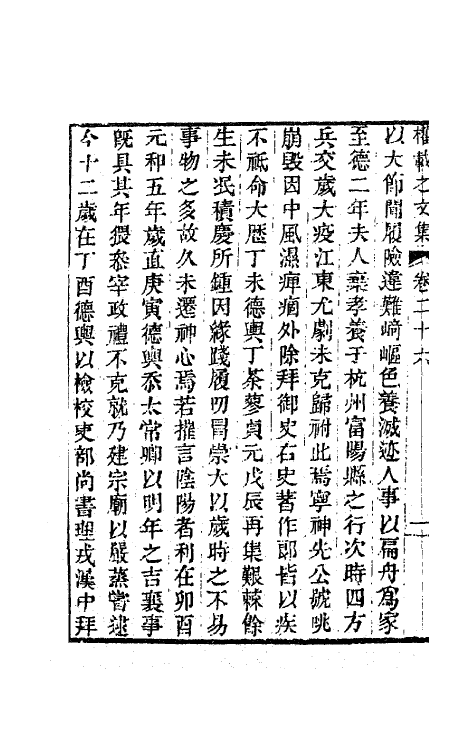 權載之文集 卷二十六
以大師聞履險違難崎嶇色養滅迹人事以扁舟爲家
至德二年夫人棄孝養于杭州富陽縣之行次時四方
兵交歲大疫江東尤劇未克歸祔此焉寧神先公號咷
崩毀因中風濕痺痼外除拜御史右史著作郎皆以疾
不祗命大歷丁未德輿丁荼蓼貞元戊辰再集艱棘餘
生未泯積慶所鍾因緣踐履叨冒崇大以歲時之不易
事物之多故久未遷神心焉若摧言陰陽者利在卯酉
元和五年歲直庚寅德輿忝太常卿以明年之吉襄事
旣具其年猥忝宰政禮不克就乃建宗廟以嚴蒸嘗逮
今十二歲在丁酉德輿以檢校吏部尚書理戎漢中拜